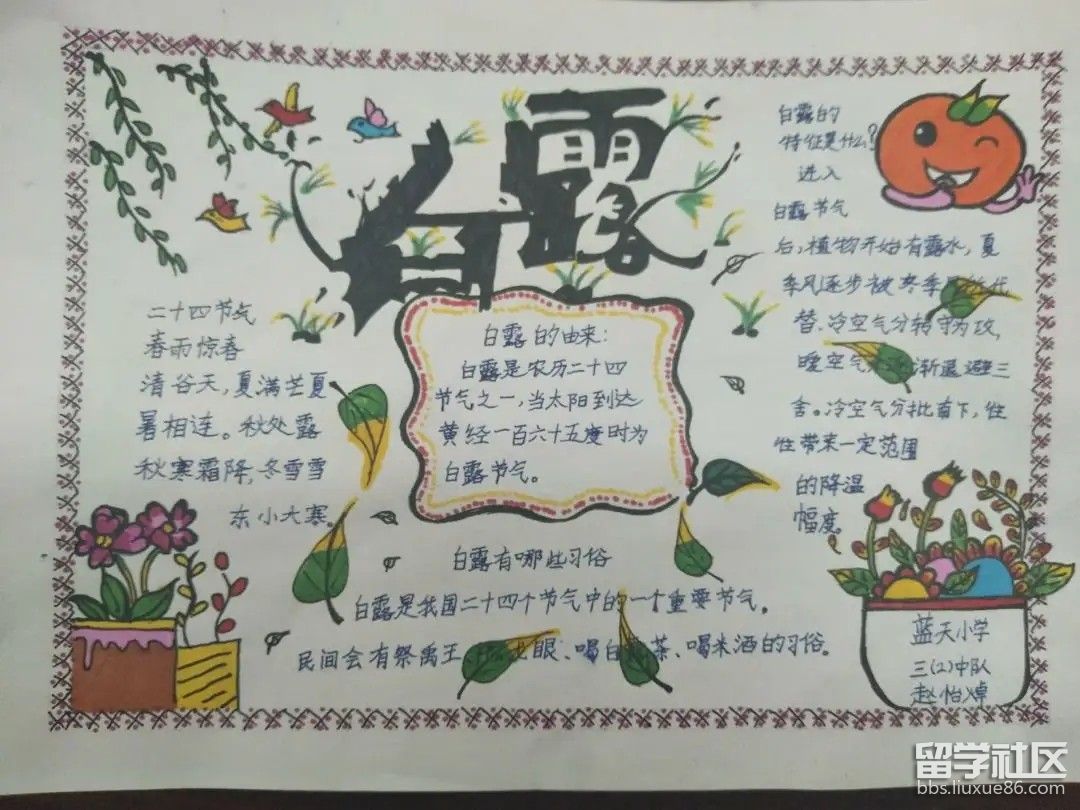 白露
二十四节气
春雨惊春
清谷天,夏满芒夏
暑相连。秋处露
秋寒霜降,冬雪雪
东小大寒。
白露的由来:
白露是农历二十四
节气之一,当太阳到达
黄经一百六十五度时为
白露节气。
白露的
特征是什么?
进入
白露节气
后,植物开始有露水,夏
季风逐步被冬季风
替、冷空气分转守为攻,
暖空气 渐退避三
舍。冷空气分批南下,往
往带来一定范围
的降温
幅度。
白露有哪些习俗
白露是我国二十四个节气中的一个重要节气。
民间会有祭禹王 眼、喝白 茶、喝米酒的习俗。
蓝天小学
三(2)中队
赵怡
留学社区
bbs.liuxue86.com